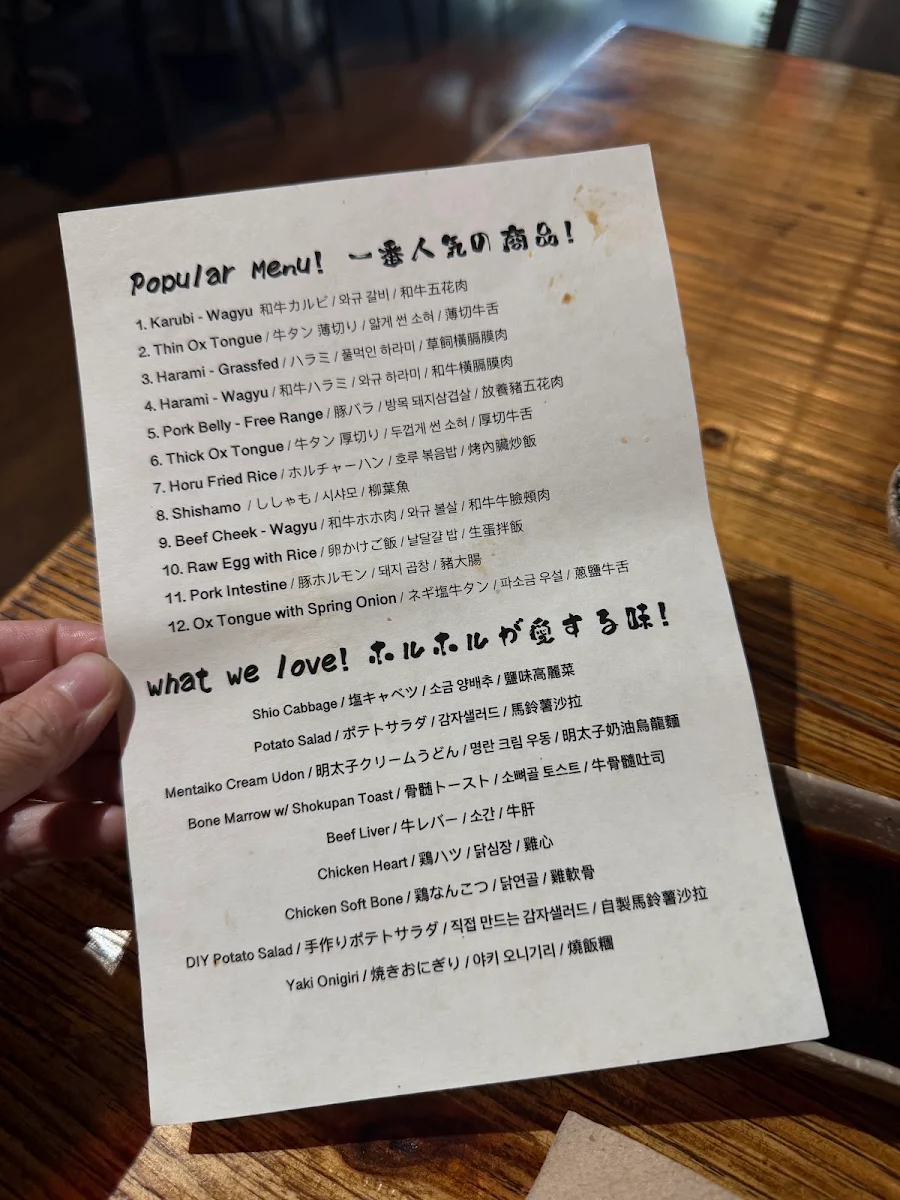 Popular Menu! 一番人気の商品!
1. Karubi - Wagyu 和牛カルビ / 와규 갈비 / 和牛五花肉
2. Thin Ox Tongue / 牛タン 薄切り / 얇게 썬 소혀 / 薄切牛舌
3. Harami - Grassfed / ハラミ / 풀먹인 하라미 / 草飼橫膈膜肉
4. Harami - Wagyu / 和牛ハラミ / 와규 하라미 / 和牛橫膈膜肉
5. Pork Belly - Free Range / 豚バラ / 방목 돼지삼겹살 / 放養豬五花肉
6. Thick Ox Tongue / 牛タン 厚切り / 두껍게 썬 소혀 / 厚切牛舌
7. Horu Fried Rice / ホルチャーハン / 호루 볶음밥 / 烤內臟炒飯
8. Shishamo / ししゃも / 시샤모 / 柳葉魚
9. Beef Cheek - Wagyu / 和牛ホホ肉 / 와규 볼살 / 和牛牛臉頰肉
10. Raw Egg with Rice / 卵かけご飯 / 날달걀 밥 / 生蛋拌飯
11. Pork Intestine / 豚ホルモン / 돼지 곱창 / 豬大腸
12. Ox Tongue with Spring Onion / ネギ塩牛タン / 파소금 우설 / 蔥鹽牛舌
what we love! ホルホルが愛する味!
Shio Cabbage / 塩キャベツ / 소금 양배추 / 鹽味高麗菜
Potato Salad / ポテトサラダ / 감자샐러드 / 馬鈴薯沙拉
Mentaiko Cream Udon / 明太子クリームうどん / 명란 크림 우동 / 明太子奶油烏龍麵
Bone Marrow w/ Shokupan Toast / 骨髄トースト / 소뼈골 토스트 / 牛骨髓吐司
Beef Liver / 牛レバー / 소간 / 牛肝
Chicken Heart / 鶏ハツ / 닭심장 / 雞心
Chicken Soft Bone / 鶏なんこつ / 닭연골 / 雞軟骨
DIY Potato Salad / 手作りポテトサラダ / 직접 만드는 감자샐러드 / 自製馬鈴薯沙拉
Yaki Onigiri / 焼きおにぎり / 야키 오니기리 / 燒飯糰